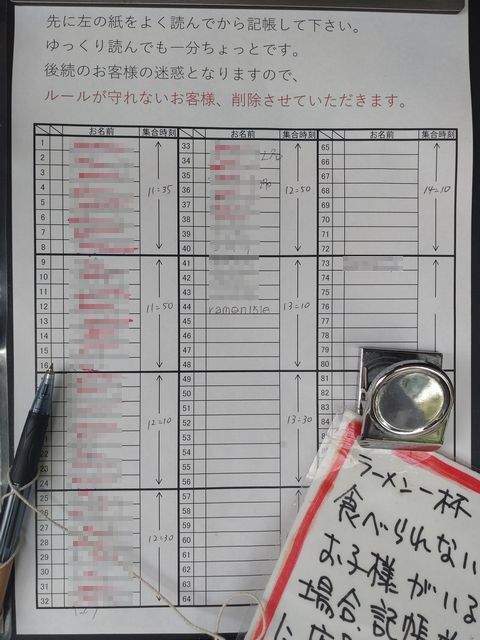 先に左の紙をよく読んでから記帳して下さい。
ゆっくり読んでも一分ちょっとです。
後続のお客様の迷惑となりますので、
ルールが守れないお客様、削除させていただきます。
お名前 集合時刻 お名前 集合時刻 お名前 集合時刻
1 33 65
2 34 66
3 35 67
4 11:35 36 12:50 68 14:10
5 37 69
6 38 70
7 39 71
8 40 72
9 41 73
10 42 74
11 43 75
12 11:50 44 ramen15le 13:10 76
13 45 77
14 46 78
15 47 79
16 48 80
17 49 81
18 50 82
19 51 83
20 12:10 52 13:30 84
21 53
22 54
23 55
24 56
25 57
26 58
27 59
28 12:30 60
29 61
30 62
31 63
32 64
ラーメン一杯
食べられない
お子様がいる
場合、記帳